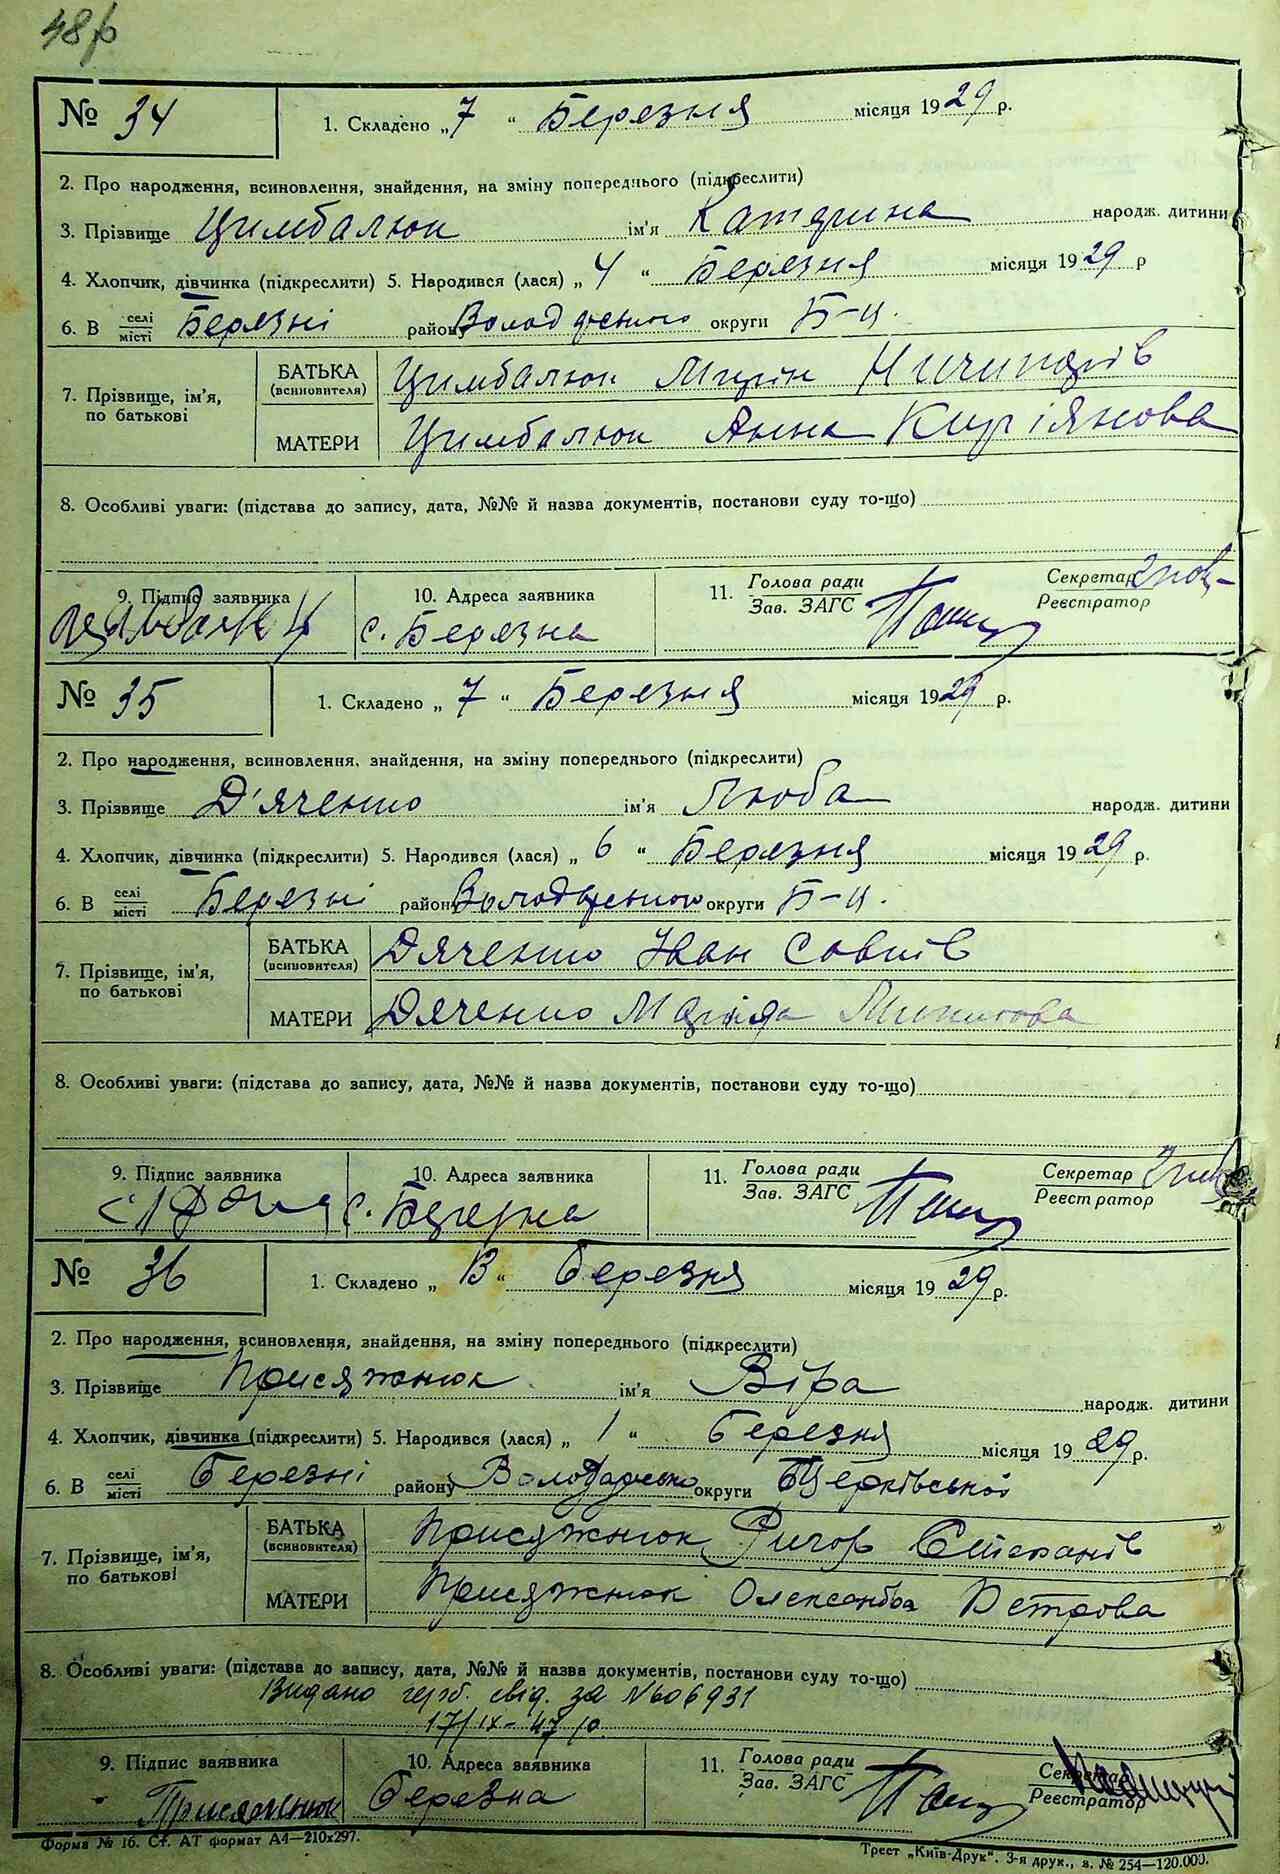 48
№ 34
1. Складено „7“ Березня місяця 1929 р.
2. Про народження, всиновлення, знайдення, на зміну попереднього (підкреслити)
3. Прізвище Цимбалюк ім'я Катерина народж. дитини
4. Хлопчик, дівчинка (підкреслити) 5. Народився (лася) „4“ Березня місяця 1929 р
6. В селі місті Березні району Володарського округи Б-Ц.
7. Прізвище, ім'я, по батькові
БАТЬКА (всиновителя) Цимбалюк Ничипорів
МАТЕРИ Цимбалюк Анна Купріянова
8. Особливі уваги: (підстава до запису, дата, №№ й назва документів, постанови суду то-що)
9. Підпис заявника
10. Адреса заявника с. Березна
11. Голова ради Зав. ЗАГС
Секретар Реєстратор
№ 35
1. Складено „7“ Березня місяця 1929 р.
2. Про народження, всиновлення, знайдення, на зміну попереднього (підкреслити)
3. Прізвище Д'яченко ім'я Люба народж. дитини
4. Хлопчик, дівчинка (підкреслити) 5. Народився (лася) „6“ Березня місяця 1929 р.
6. В селі місті Березні району Володарського округи Б-Ц.
7. Прізвище, ім'я, по батькові
БАТЬКА (всиновителя) Дяченко Іван Савків
МАТЕРИ Дяченко Марія
8. Особливі уваги: (підстава до запису, дата, №№ й назва документів, постанови суду то-що)
9. Підпис заявника
10. Адреса заявника с.
11. Голова ради Зав. ЗАГС
Секретар Реєстратор
№ 36
1. Складено „13“ березня місяця 1929 р.
2. Про народження, всиновлення, знайдення, на зміну попереднього (підкреслити)
3. Прізвище Присяжнюк ім'я Віра народж. дитини
4. Хлопчик, дівчинка (підкреслити) 5. Народився (лася) „1“ березня місяця 1929 р.
6. В селі місті березні району Володарсько округи БЦерківської
7. Прізвище, ім'я, по батькові
БАТЬКА (всиновителя) Присяжнюк Григор Степанів
МАТЕРИ Присяжнюк Олександра Петрова
8. Особливі уваги: (підстава до запису, дата, №№ й назва документів, постанови суду то-що)
Видано герб. свід. за №606931
17/IX-47 р.
9. Підпис заявника Присяжнюк
10. Адреса заявника березна
11. Голова ради Зав. ЗАГС
Секретар Реєстратор
Форма № 16. Ст. АТ формат А4—210х297.
Трест „Київ-Друк“. 3-я друк., з. № 254—120.000.